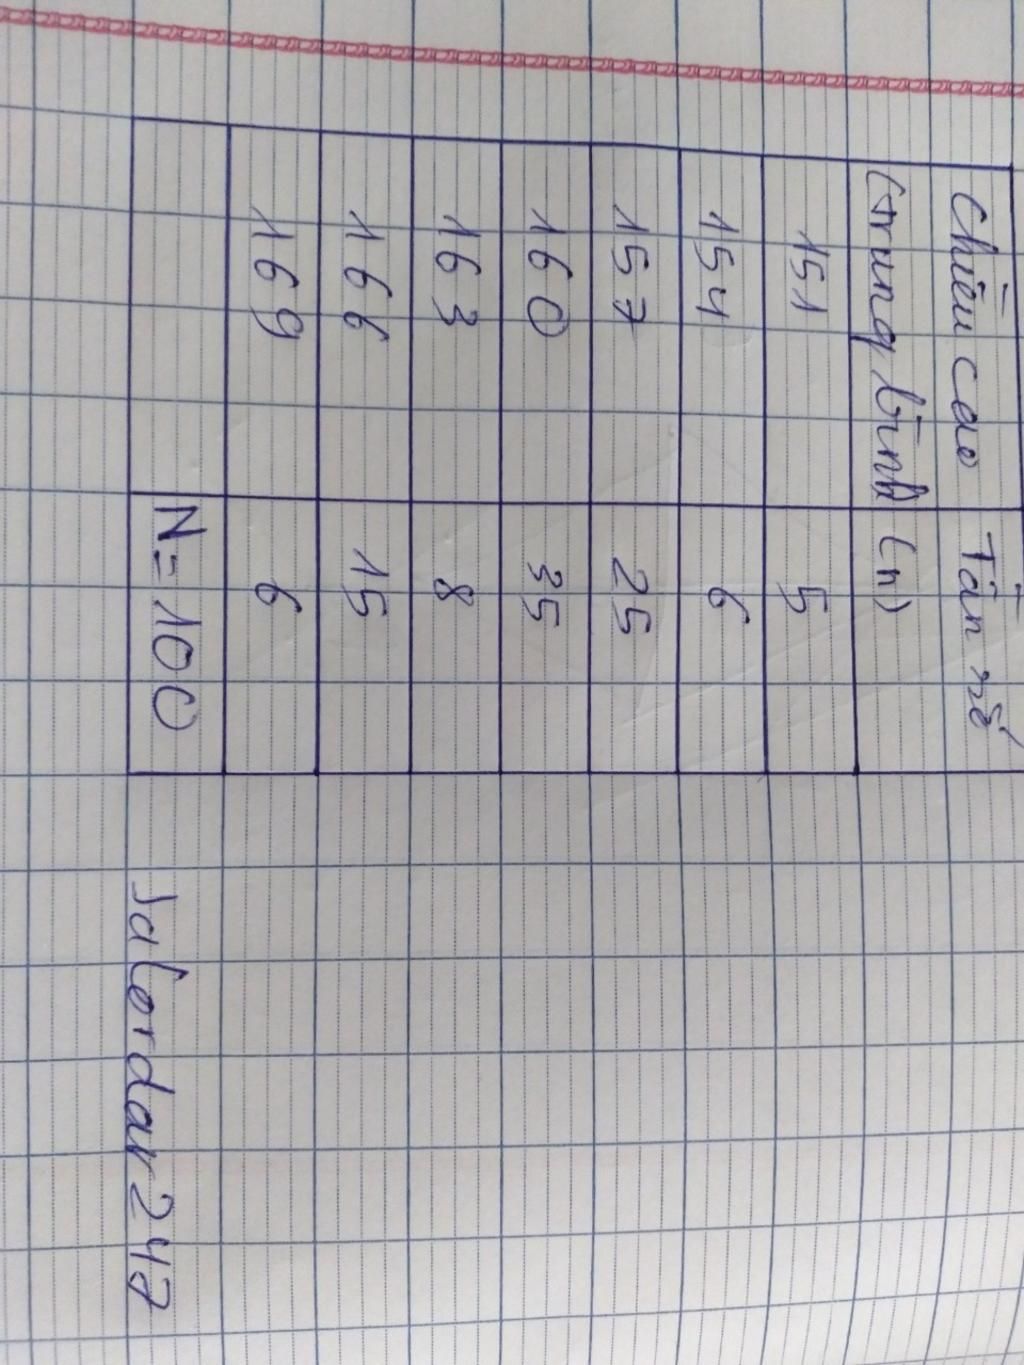 Chiều cao Tần số
(trung bình (n)
151 5
154 6
157 25
160 35
163 8
166 15
169 6
N=100